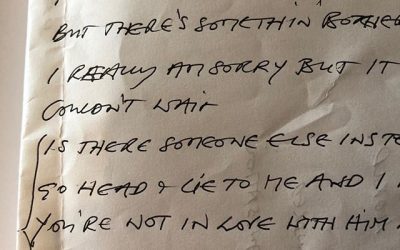 BUT THERE'S SOMETHIN' BOTHE
I REALLY AM SORRY BUT IT
COULDN'T WAIT
IS THERE SOMEONE ELSE INSTE
GO HEAD & LIE TO ME AND I
YOU'RE NOT IN LOVE WITH HIM